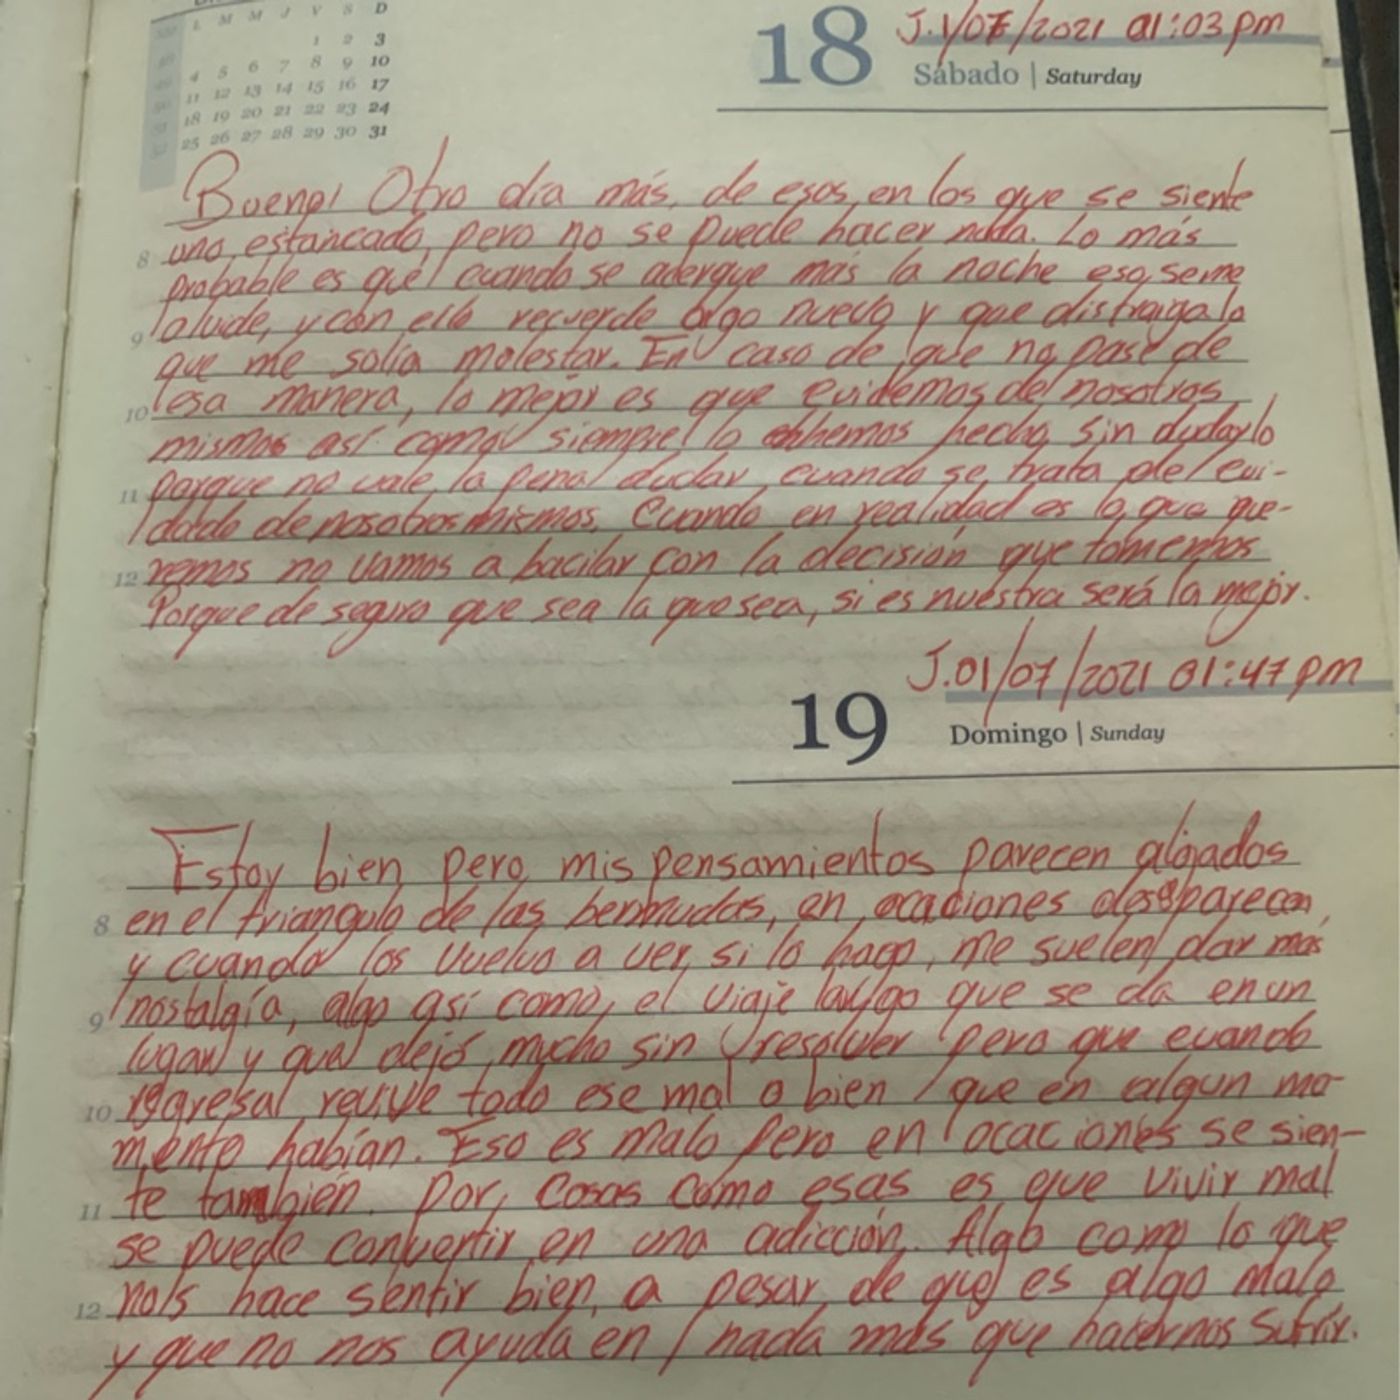 L M M J V S D
1 2 3
4 5 6 7 8 9 10
11 12 13 14 15 16 17
18 19 20 21 22 23 24
25 26 27 28 29 30 31
18 J.1/07/2021 01:03 pm
Sábado | Saturday
Bueno! Otro día más, de esos, en los que se siente
8 uno, estancado, pero no se puede hacer nada. Lo más
probable es que cuando se acerque más la noche eso, se me
9 olvide, y con ello recuerde algo nuevo y que distraiga lo
que me solía molestar. En caso de que no pase de
10 esa manera, lo mejor es que cuidemos de nosotros
mismos así como siempre lo hemos hecho, sin dudarlo
11 porque no vale la pena dudar, cuando se trata del cui-
dado de nosotros mismos. Cuando en realidad es lo que que-
12 remos no vamos a bacilar con la decisión que tomemos
Porque de seguro que sea la que sea, si es nuestra será la mejor.
19 J.01/07/2021 01:47 pm
Domingo | Sunday
Estoy bien, pero, mis pensamientos parecen alojados
8 en el triangulo de las bermudas, en ocaciones desaparecen,
y cuando los vuelvo a ver, si lo hago, me suelen dar más
9 nostalgía, algo así como, el viaje largo que se da en un
lugar y que dejó mucho sin resolver pero que cuando
10 regresa revive todo ese mal o bien que en algun mo-
mento habían. Eso es malo pero en ocaciones se sien-
11 te también. Por, cosas como esas es que vivir mal
se puede convertir en una adicción. Algo como lo que
12 nos hace sentir bien, a pesar, de que es algo malo
y que no nos ayuda en nada más que hacernos sufrir.